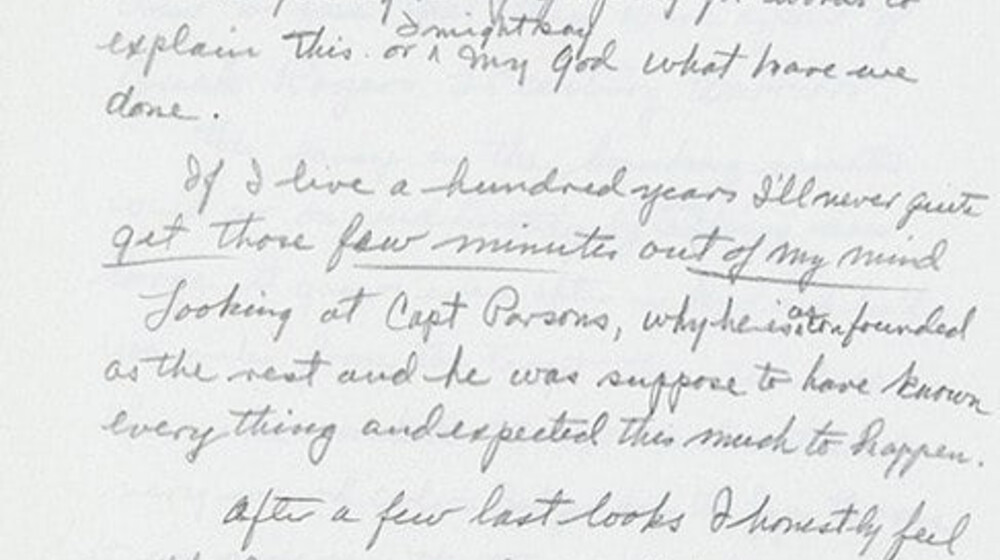 words to
I might say
explain this. or ^ my God what have we
done.
If I live a hundred years I'll never quite
get those few minutes out of my mind
Looking at Capt Parsons, why he is as confounded
as the rest and he was suppose to have known
every thing and expected this much to happen.
after a few last looks I honestly feel